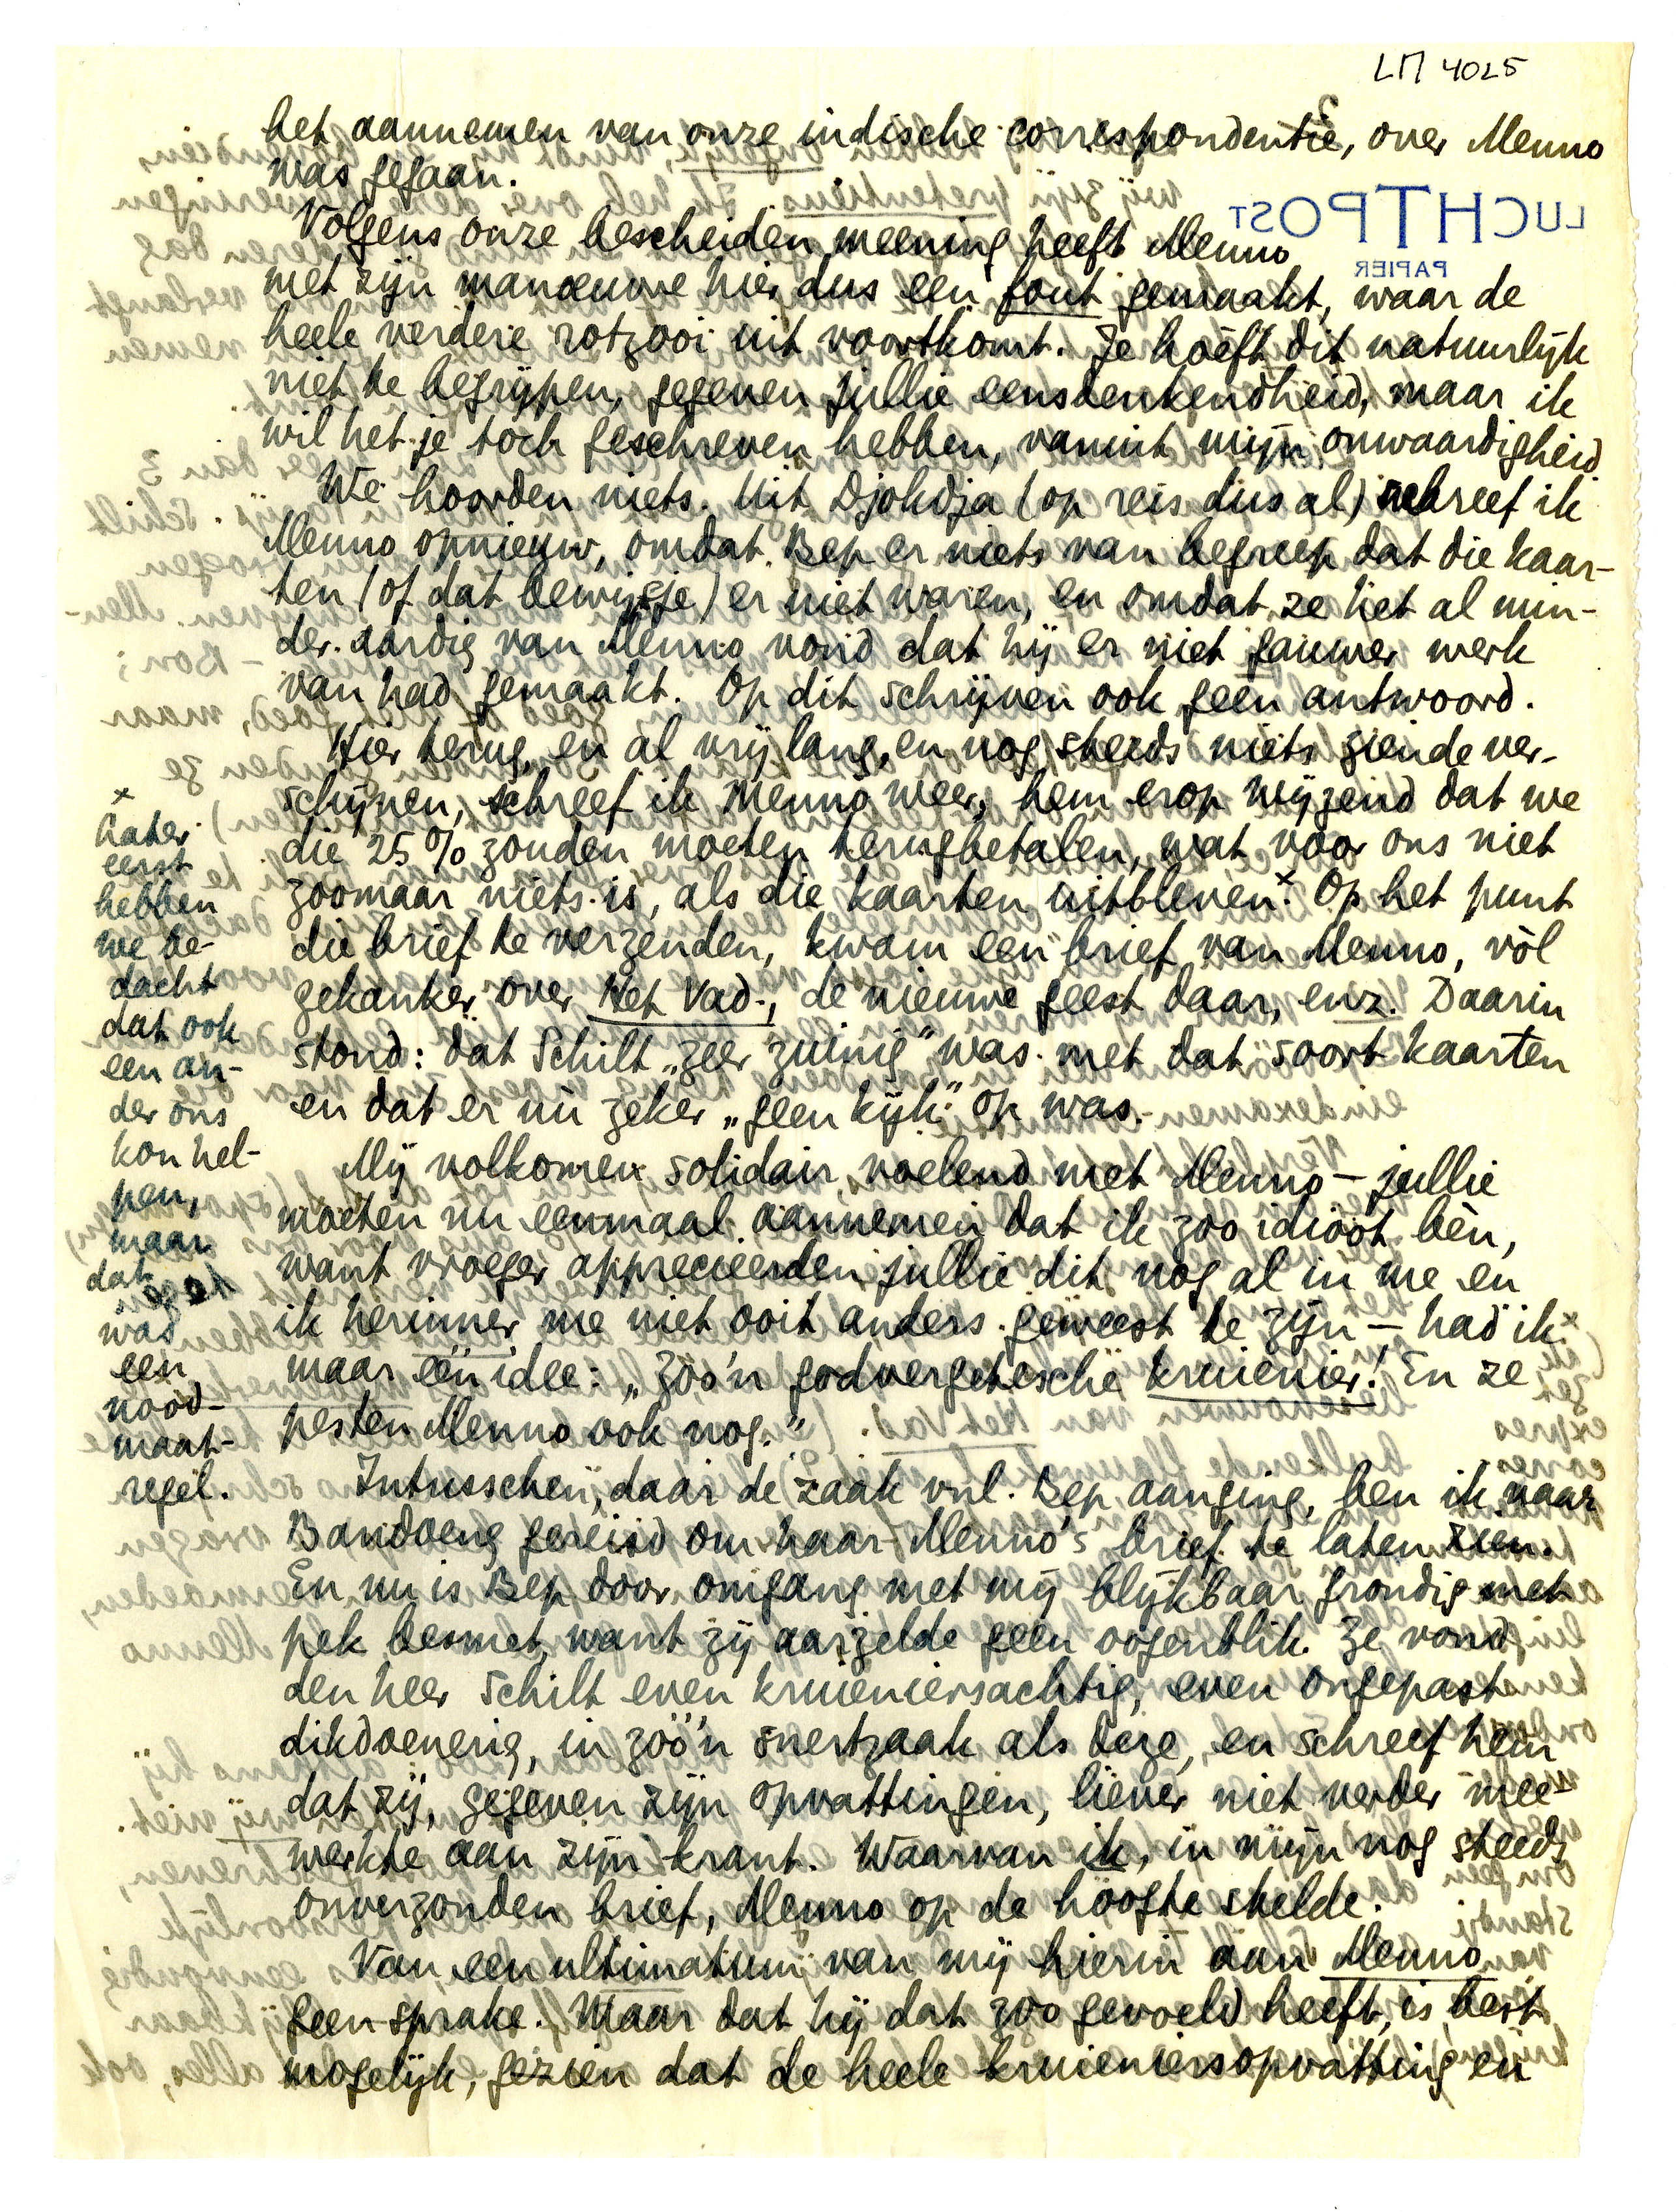 LM 4025
het aannemen van onze indische correspondentie, over Menno
was gegaan.
LUCHTPOST
PAPIER
Volgens onze bescheiden meening heeft Menno
met zijn manoeuvre hier dus een fout gemaakt, waar de
heele verdere rotzooi uit voortkomt. Je hoeft dit natuurlijk
niet te begrijpen, gegeven jullie eensdenkendheid, maar ik
wil het je toch geschreven hebben, vanuit mijn onwaardigheid.
We hoorden niets. Uit Djokdja (op reis dus al) schreef ik
Menno opnieuw, omdat Bep er niets van begreep dat die kaar-
ten (of dat bewijsje) er niet waren, en omdat ze het al min-
der aardig van Menno vond dat hij er niet gauwer werk
van had gemaakt. Op dit schrijven ook geen antwoord.
Hier terug, en al vrij lang, en nog steeds niets ziende ver-
schijnen, schreef ik Menno weer, hem erop wijzend dat we
die 25% zouden moeten terugbetalen, wat voor ons niet
zoomaar niets is, als die kaarten uitbleven.x Op het punt
die brief te verzenden, kwam een brief van Menno, vòl
gekanker over Het Vad., de nieuwe geest daar, enz. Daarin
stond: dat Schilt „zeer zuinig” was met dat soort kaarten
en dat er nu zeker „geen kijk” op was.
Mij volkomen solidair voelend met Menno – jullie
moeten nu eenmaal aannemen dat ik zoo idioot bèn,
want vroeger apprecieerden jullie dit nog al in me en
ik herinner me niet ooit anders geweest te zijn – had ik
maar één idee: „Zoo'n godvergetesche kruienier! En ze
pesten Menno ook nog.”
Intusschen, daar de zaak vnl. Bep aanging, ben ik naar
Bandoeng gereisd om haar Menno's brief te laten zien.
En nu is Bep door omgang met mij blijkbaar grondig met
pek besmet, want zij aarzelde geen oogenblik. Ze vond
den heer Schilt even kruieniersachtig, even ongepast
dikdoenerig, in zóó'n snertzaak als deze, en schreef hem
dat zij, gegeven zijn opvattingen, liever niet verder mee-
werkte aan zijn krant. Waarvan ik, in mijn nog steeds
onverzonden brief, Menno op de hoogte stelde.
Van een ultimatum van mij hierin aan Menno
geen sprake. Maar dat hij dat zoo gevoeld heeft, is best
mogelijk, gezien dat de heele kruieniersopvatting en
x
Later
eerst
hebben
we be-
dacht
dat ook
een an-
der ons
kon hel-
pen,
maar
dat
was
een
nood-
maat-
regel.